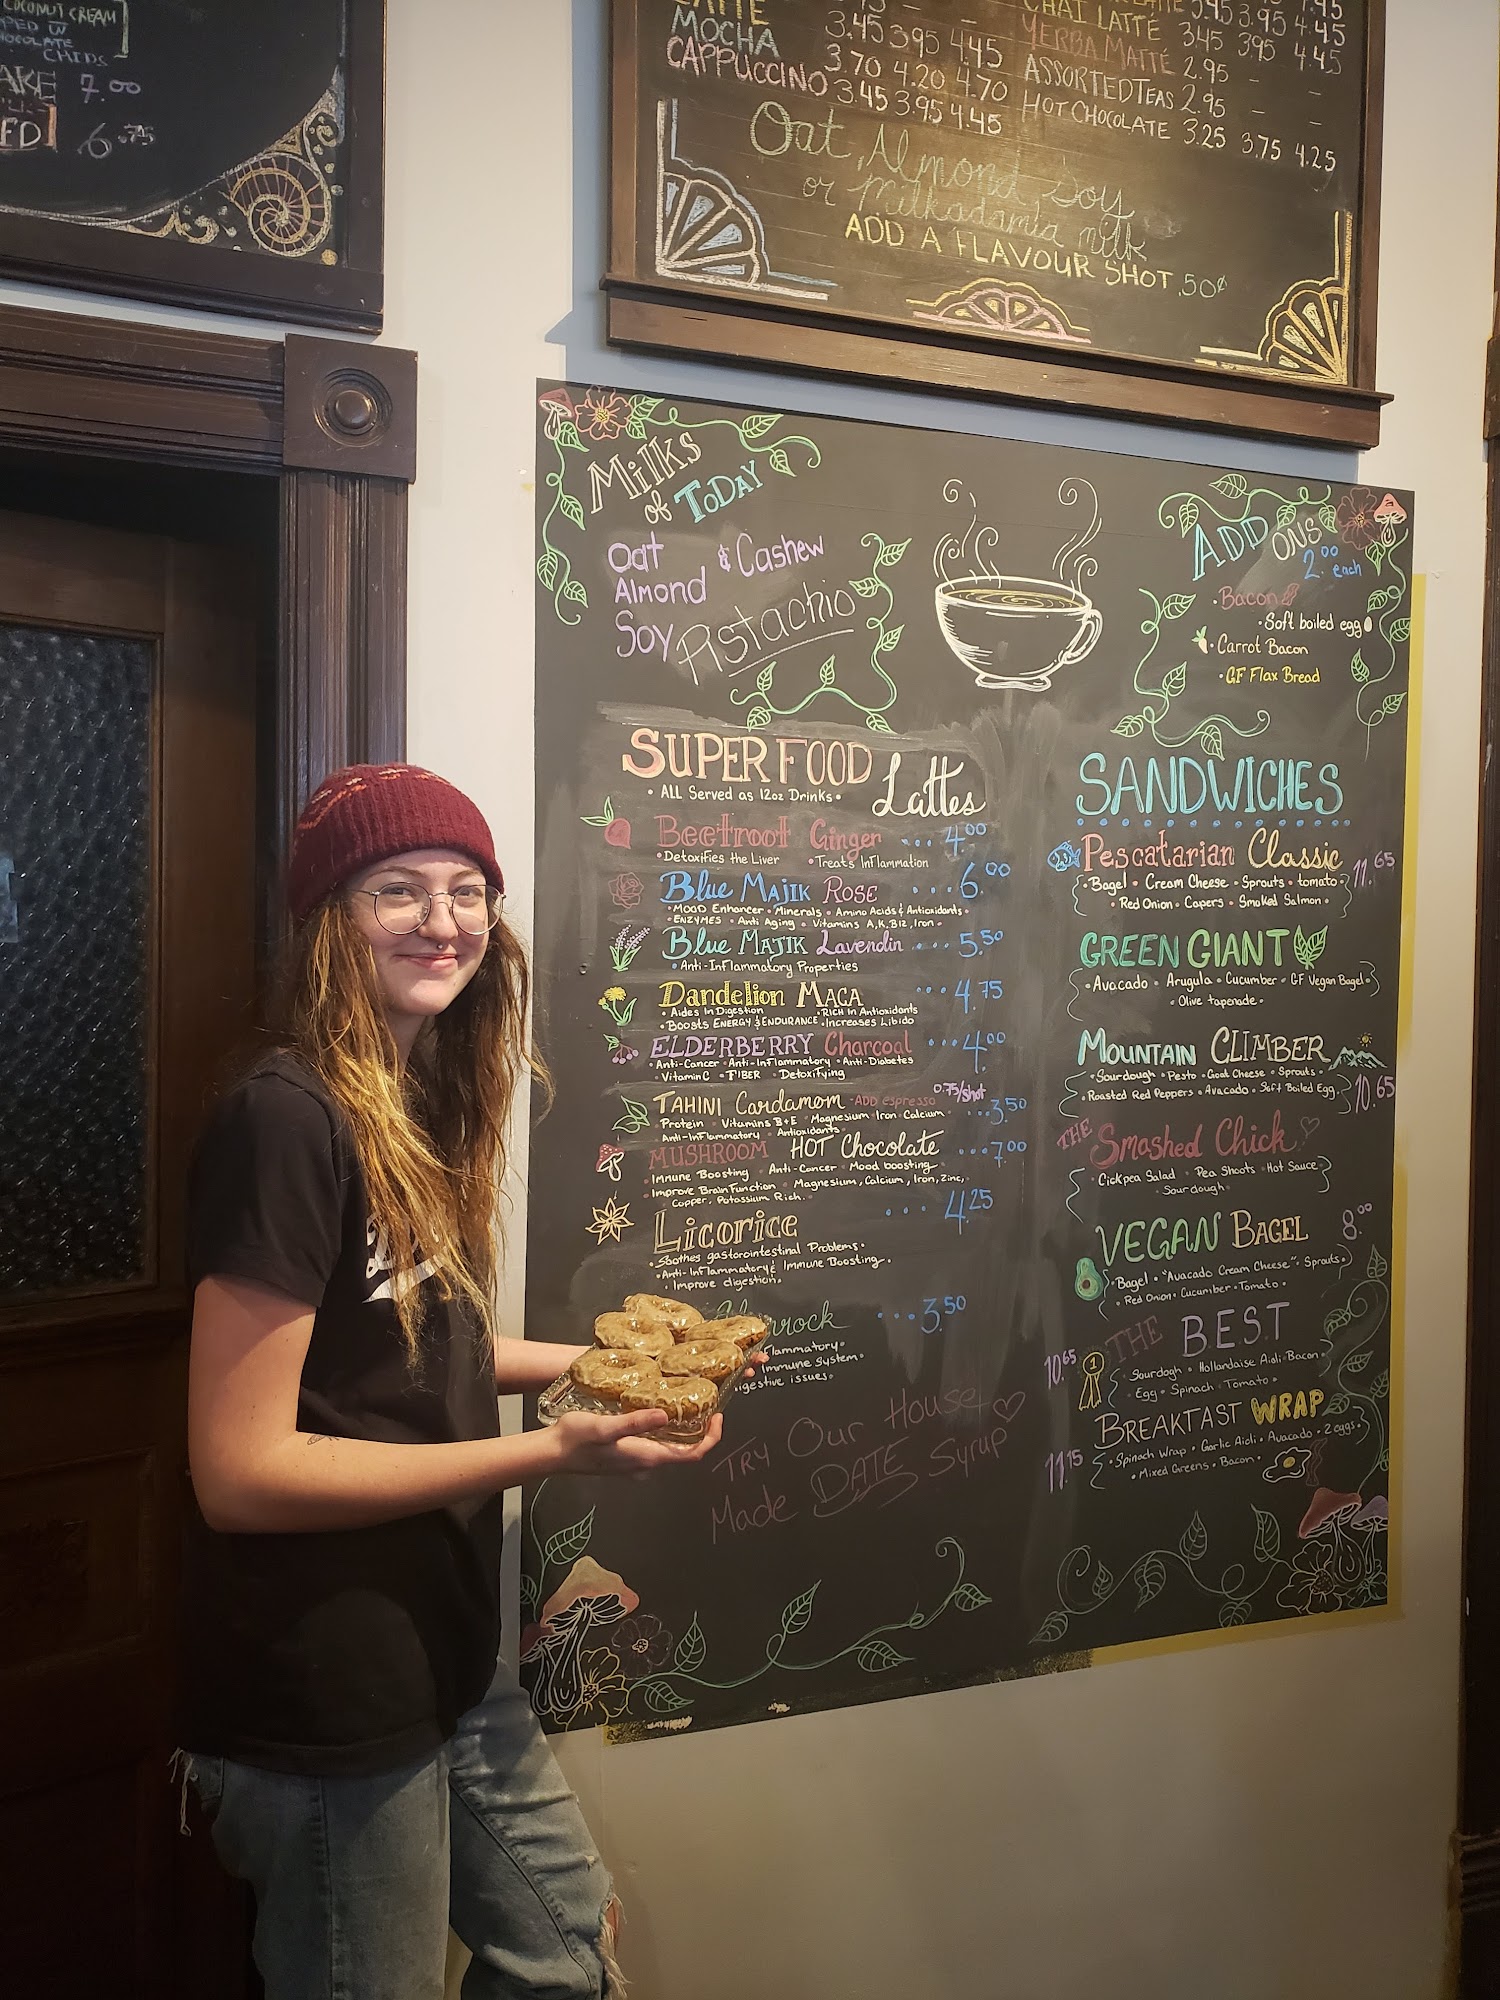 COCONUT CREAM
CHIPS
7.00
6.75
LATTE 3.45 3.95 4.45
MOCHA 3.70 4.20 4.70
CAPPUCCINO 3.45 3.95 4.45
CHAI LATTÉ 3.45 3.95 4.45
YERBA MATTÉ 2.95 - -
ASSORTED TEAS 2.95 - -
HOT CHOCOLATE 3.25 3.75 4.25
Oat, Almond, Soy
or Milkadamia milk
ADD A FLAVOUR SHOT .50¢
Milks
of TODAY
Oat & Cashew
Almond
Soy Pistachio
ADD ONS
2.00 each
• Bacon
• Soft boiled egg
• Carrot Bacon
• GF Flax Bread
SUPERFOOD Lattes
• ALL Served as 12oz Drinks •
Beetroot Ginger ... 4.00
• Detoxifies the Liver • Treats Inflammation
Blue Majik ROSE ... 6.00
• MOOD Enhancer • Minerals • Amino Acids & Antioxidants •
• ENZYMES • Anti Aging • Vitamins A,K,B12, Iron •
Blue MAJIK Lavendin .... 5.50
• Anti-Inflammatory Properties
Dandelion MACA ... 4.75
• Aides In Digestion • RICH In Antioxidants
• BOOSTS ENERGY & ENDURANCE • Increases Libido
ELDERBERRY Charcoal ... 4.00
• Anti-Cancer • Anti-Inflammatory • Anti-Diabetes
• Vitamin C • FIBER • Detoxifying
TAHINI Cardamom • ADD espresso 0.75/shot ... 3.50
Protein • Vitamins B+E • Magnesium • Iron • Calcium •
Anti-Inflammatory • Antioxidants •
MUSHROOM HOT Chocolate ... 7.00
Immune Boosting • Anti-Cancer • Mood boosting
Improve Brain Function • Magnesium, Calcium, Iron, Zinc,
Copper, Potassium Rich •
Licorice ... 4.25
• Soothes gastorointestinal Problems •
• Anti-Inflammatory & Immune Boosting •
• Improve digestion •
... 3.50
Immune System •
TRY Our House
Made DATE Syrup
SANDWICHES
Pescatarian Classic 11.65
• Bagel • Cream Cheese • Sprouts • tomato •
• Red Onion • Capers • Smoked Salmon •
GREEN GIANT
• Avocado • Arugula • Cucumber • GF Vegan Bagel •
• Olive tapenade •
MOUNTAIN CLIMBER
• Sourdough • Pesto • Goat Cheese • Sprouts •
• Roasted Red Peppers • Avocado • Soft Boiled Egg • 10.65
THE Smashed Chick
• Cickpea Salad • Pea Shoots • Hot Sauce •
• Sourdough •
VEGAN BAGEL 8.00
• Bagel • "Avacado Cream Cheese" • Sprouts •
• Red Onion • Cucumber • Tomato •
THE BEST
10.65 1 Sourdogh • Hollandaise Aioli • Bacon •
Egg • Spinach • Tomato •
BREAKTAST WRAP
11.15 • Spinach Wrap • Garlic Aioli • Avacado • 2 eggs •
• Mixed Greens • Bacon •